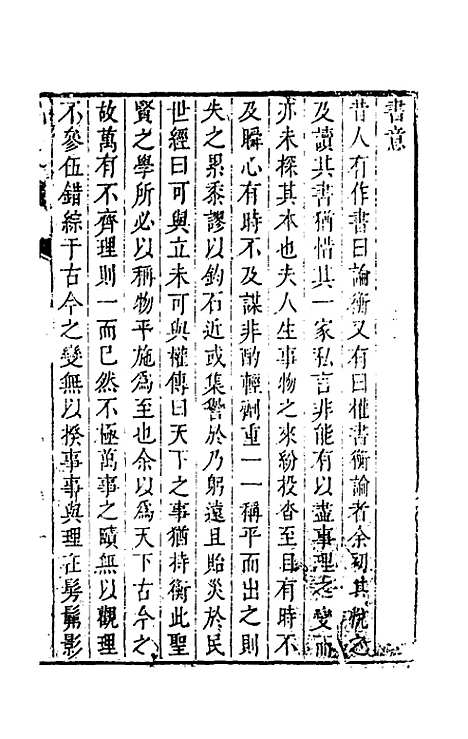 書意
昔人有作書曰論衡又有曰權書衡論者余初其稅之
及讀其書猶惜其一家私言非能有以盡事理之變而
亦未探其本也夫人生事物之來紛投沓至目有時不
及瞬心有時不及謀非酌輕劑重一一稱平而出之則
失之累黍謬以鈞石近或集詧於乃躬遠且貽災於民
世經曰可與立未可與權傳曰天下之事猶持衡此聖
賢之學所必以稱物平施為至也余以為天下古今之
故萬有不齊理則一而已然不極萬事之賾無以觀理
不參伍錯綜于古今之變無以揆事事與理在髣髴影